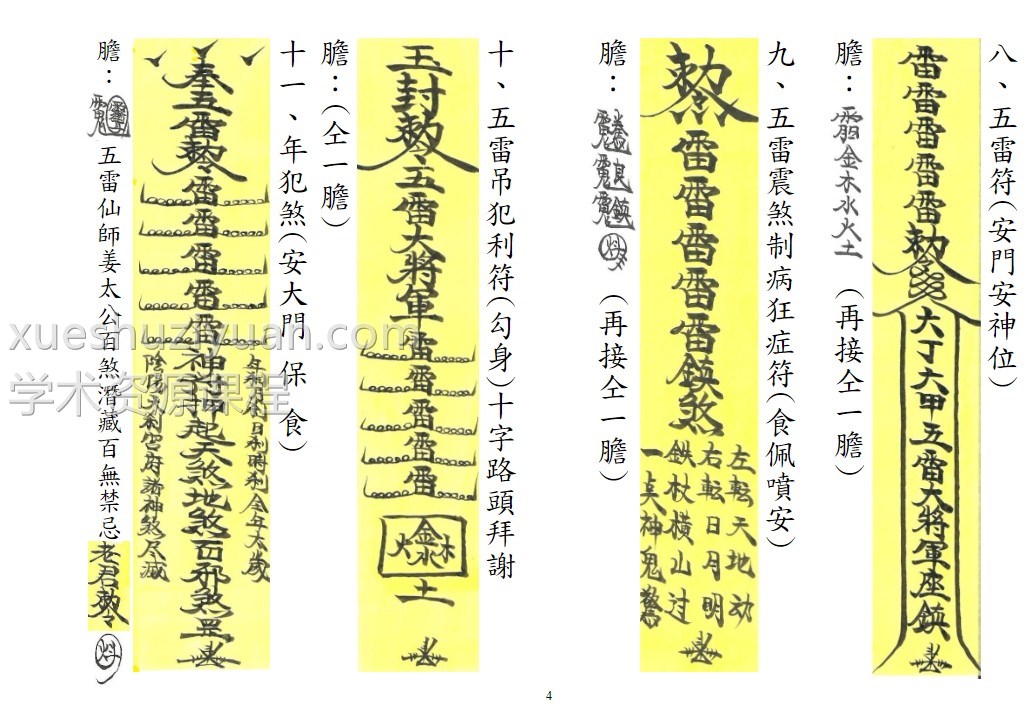 八、五雷符(安門安神位)
雷雷雷雷雷敕
六丁六甲五雷大將軍座鎮
膽：
金木水火土
(再接仝一膽)
九、五雷震煞制病狂症符(食佩噴安)
敕令
雷雷雷雷雷鎮煞
左転天地动
右転日月明
鉄杖橫山过
一点神鬼驚
膽：
(再接仝一膽)
十、五雷吊犯利符(勾身)十字路頭拜謝
玉封敕令五雷大將軍雷雷雷雷雷
金木水火
土
膽：(仝一膽)
十一、年犯煞(安大門 保 食)
奉五雷敕令雷雷雷雷雷神
起天煞地煞百邪煞
全年太歲
宮府諸神煞尽滅
膽：
五雷仙師姜太公百煞潛藏百無禁忌老君敕令
xueshuziyuan.com
学术资源课程
4